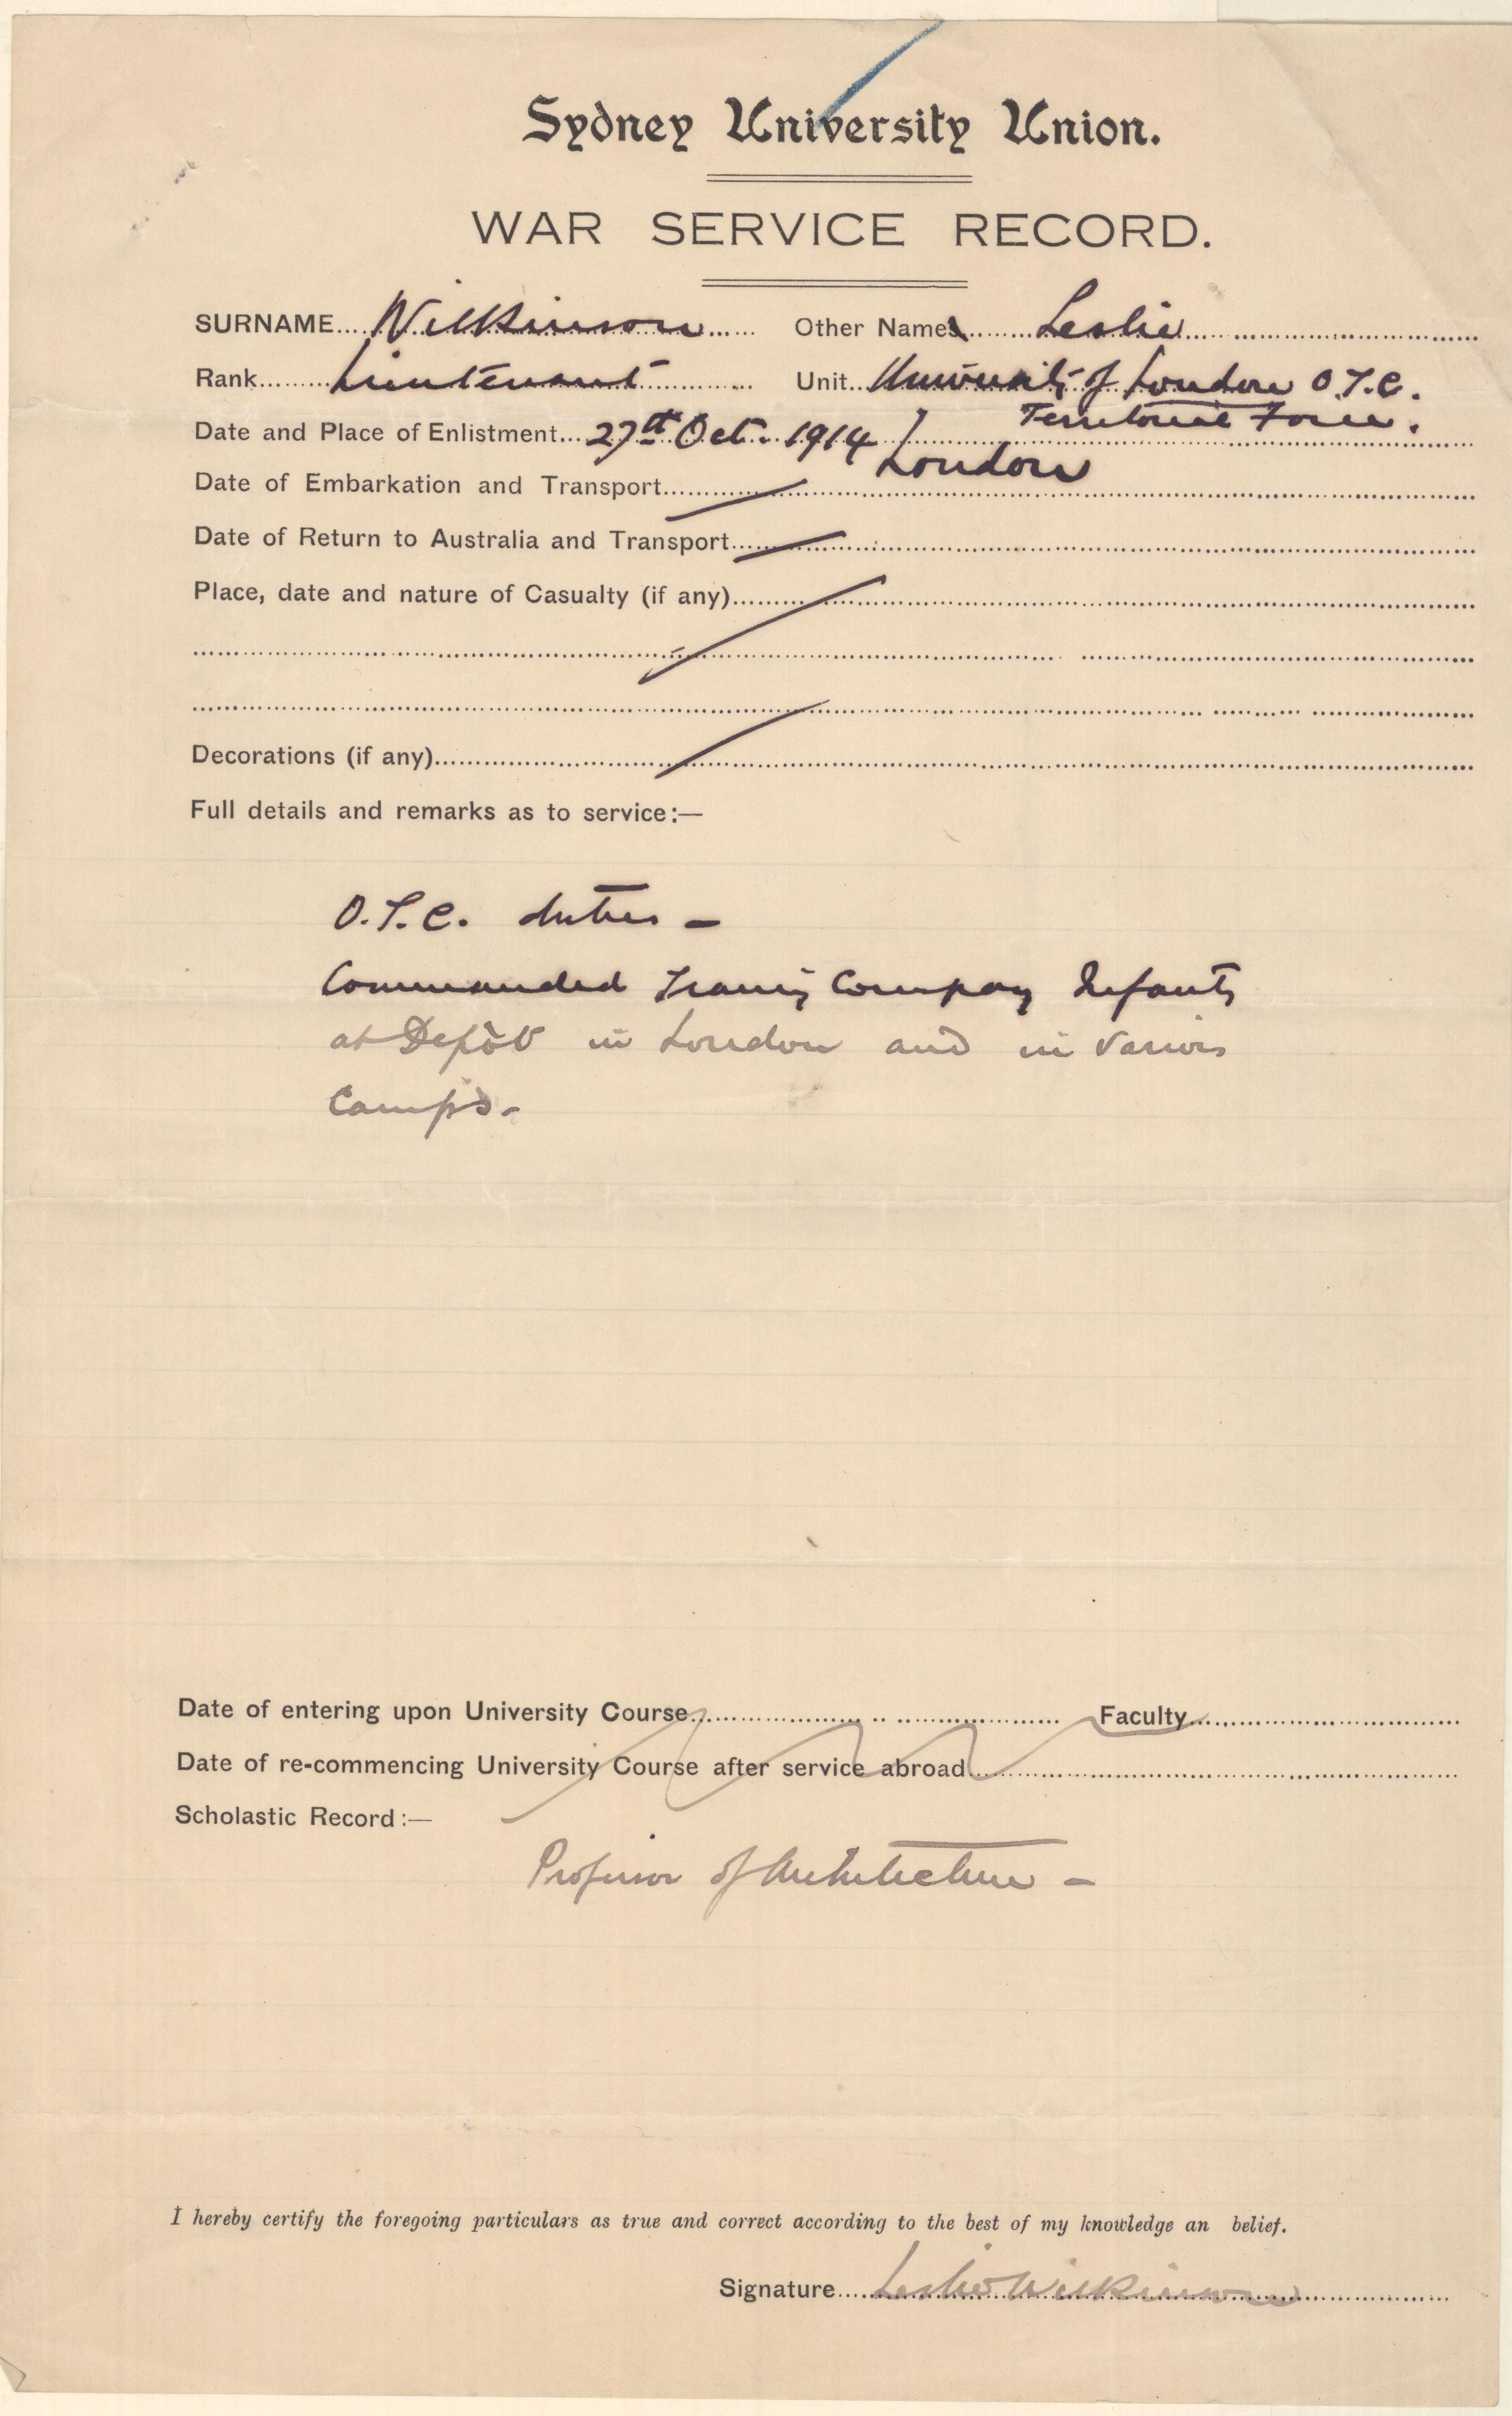 Sydney University Union.
WAR SERVICE RECORD.
SURNAME... Wilkinson ...... Other Names...... Leslie ......
Rank...... Lieutenant ...... Unit... University of London O.T.C.
Territorial Force.
Date and Place of Enlistment... 27th Oct. 1914 / London
Date of Embarkation and Transport......
Date of Return to Australia and Transport......
Place, date and nature of Casualty (if any)......
Decorations (if any)......
Full details and remarks as to service:—
O.T.C. duties —
Commanded Training Company Infantry
at Depôt in London and in various
Camps.
Date of entering upon University Course...... Faculty......
Date of re-commencing University Course after service abroad......
Scholastic Record:—
Professor of Architecture —
I hereby certify the foregoing particulars as true and correct according to the best of my knowledge an belief.
Signature.... Leslie Wilkinson ......